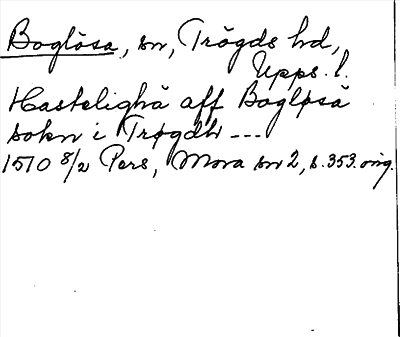 Boglösa, sn, Trögds hd,
Upps. l.
Hastelighä aff Bogløsä
sokn i Trøgdh ---
1510 8/2 Pers, Mora sn 2, s. 353. orig.